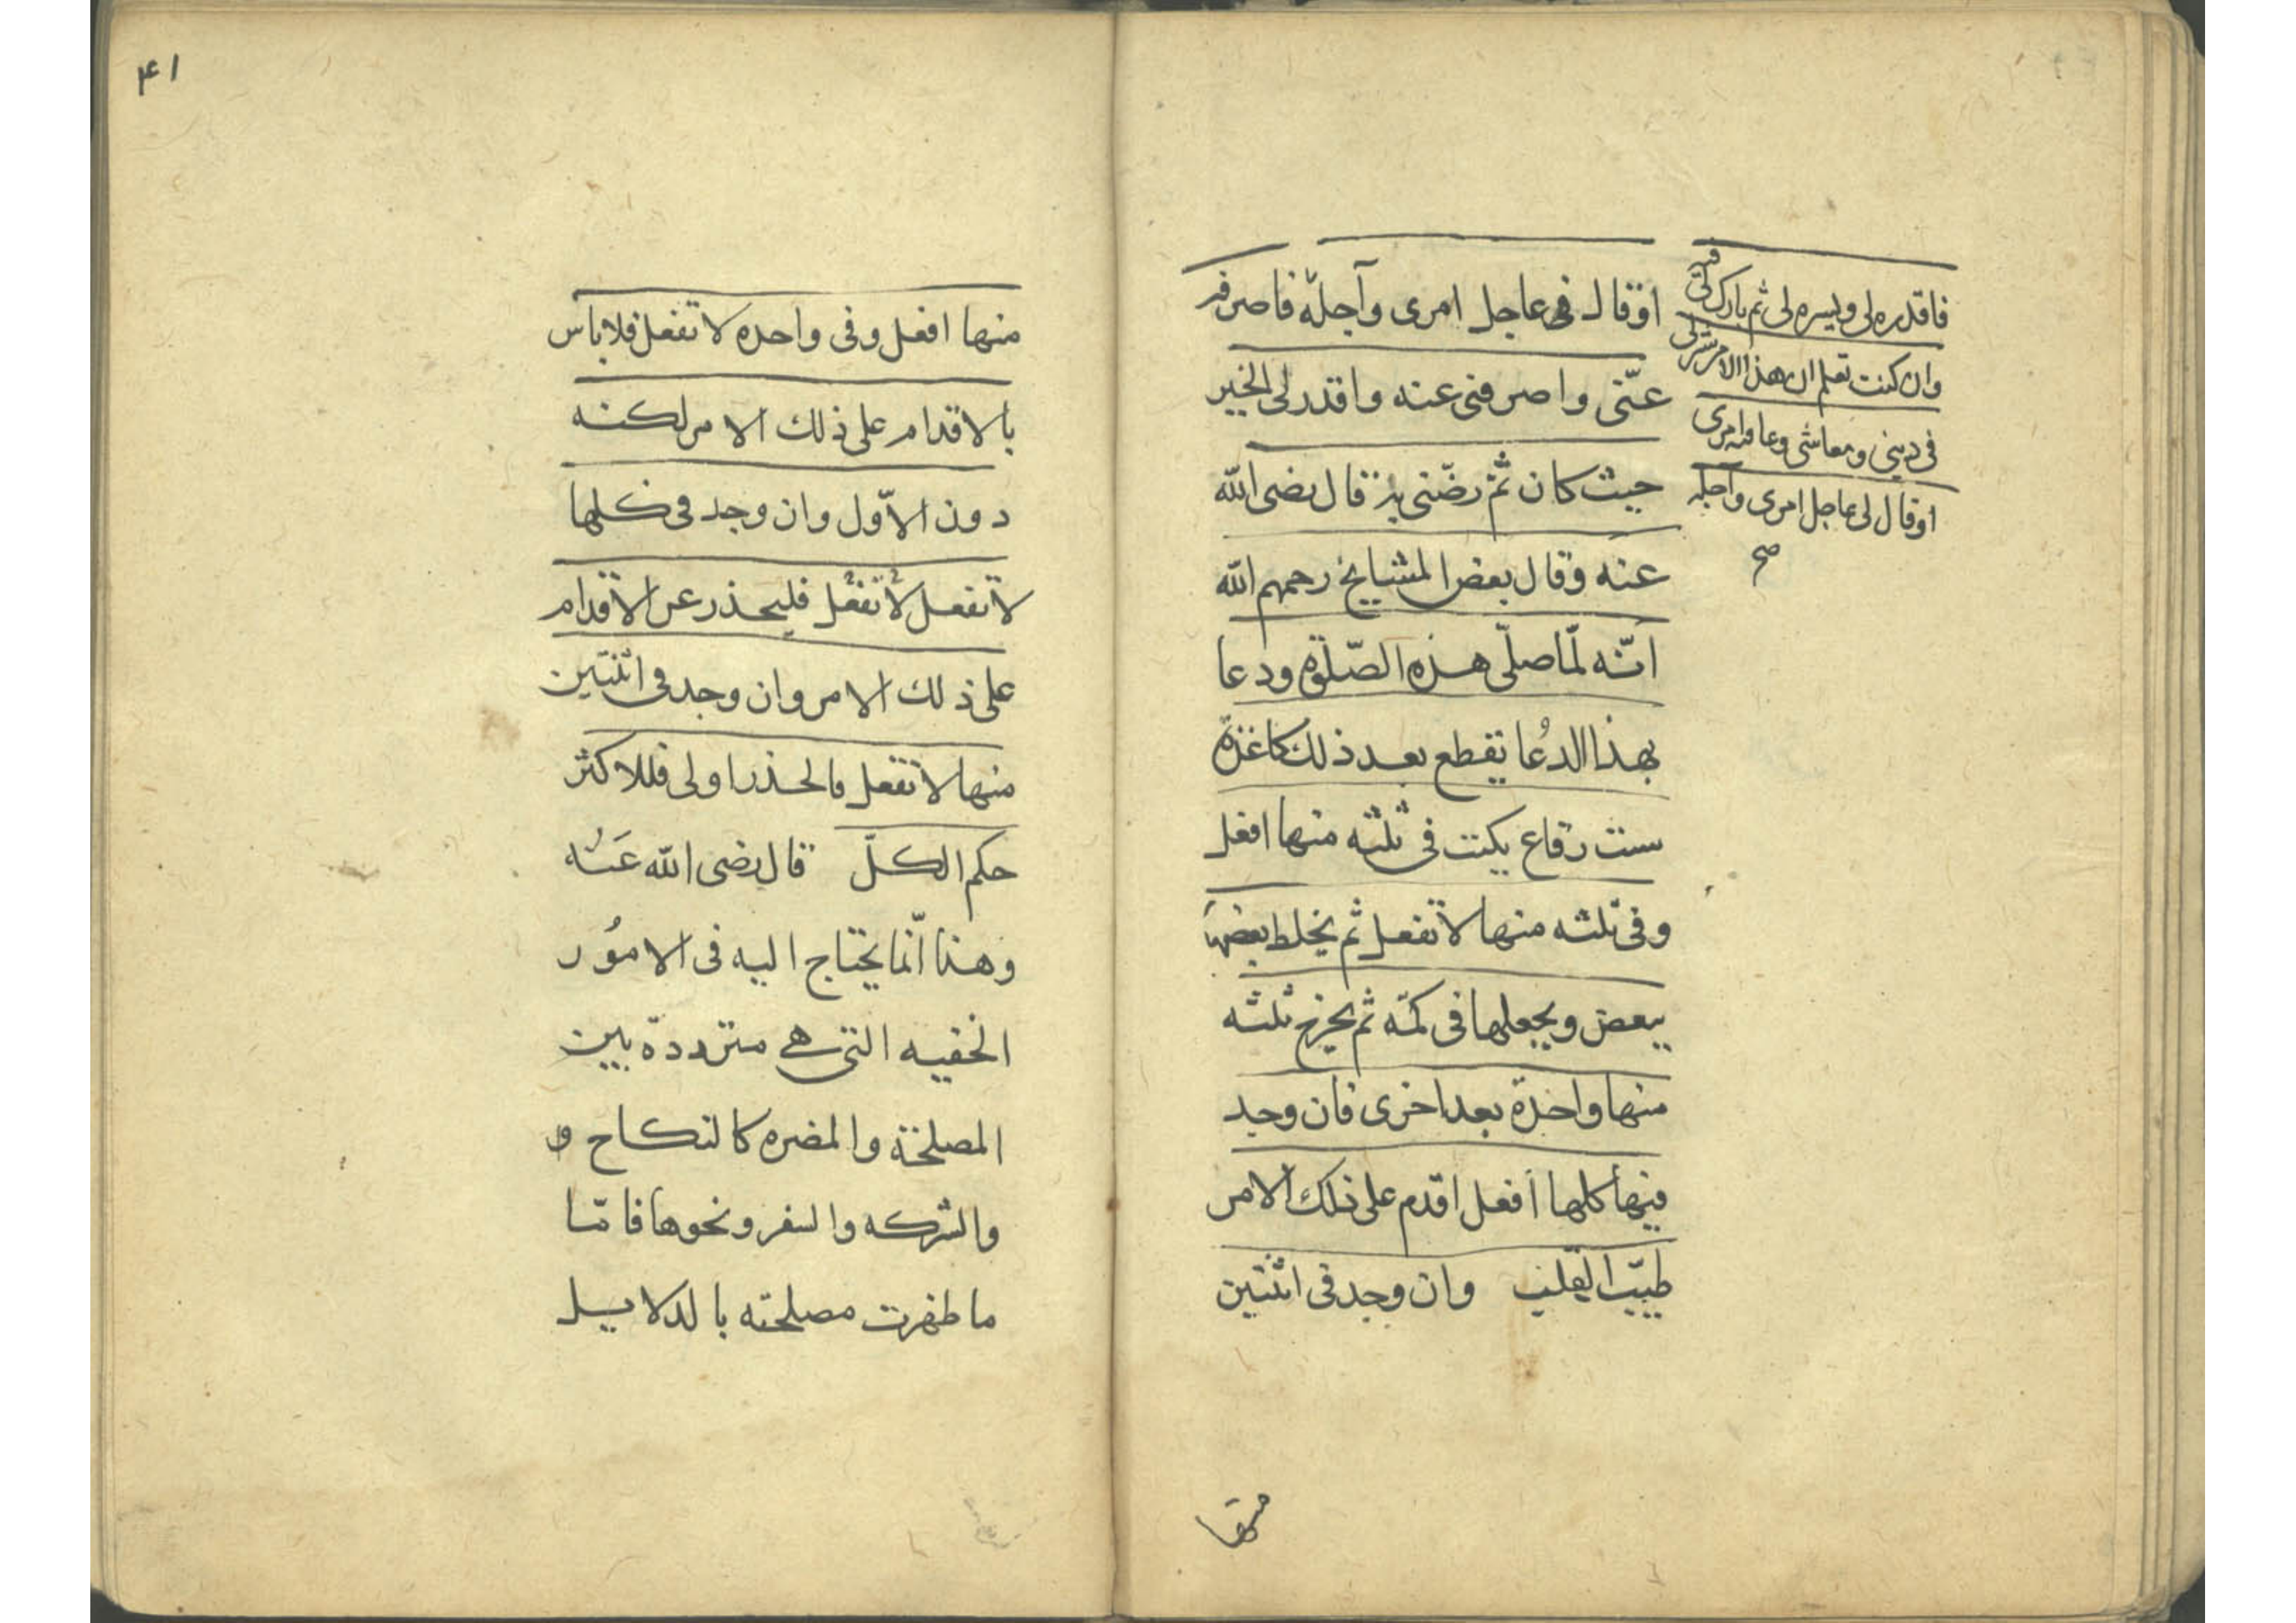 اوقال فى عاجل امرى وآجله فاصرفه
عنّى واصرفنى عنه واقدر لى الخير
حيث كان ثمّ رضّنى به قال رضى الله
عنه وقال بعض المشايخ رحمهم الله
انّه لمّا صلّى هذه الصّلوة ودعا
بهذا الدُعا يقطع بعد ذلك كاغذة
ست رقاع يكتب فى ثلثه منها افعل
وفى ثلثه منها لا تفعل ثم يخلط بعضها
ببعض ويجعلها فى كمّه ثم يخرج ثلثه
منها واحدة بعد اخرى فان وجد
فيها كلها أفعل اقدم على ذلك الامر
طيّب القلب وان وجد فى اثنتين
منها
فاقدره لى ويسره لى ثم بارك لى فيه
وان كنت تعلم ان هذا الامر شر لى
فى دينى ومعاشى وعاقبه امرى
اوقال لى عاجل امرى وآجله
صح
٤١
منها افعل وفى واحده لا تفعل فلا باس
بالاقدام على ذلك الامر لكنه
دون الاوّل وان وجد فى كلها
لا تفعل لا تفعل فليحذر عن الاقدام
على ذلك الامر وان وجد فى اثنتين
منها لا تفعل فالحذر اولى فللاكثر
حكم الكلّ قال رضى الله عَنُه
وهذا انّما يحتاج اليه فى الامُور
الخفيه التى هى مترددة بين
المصلحة والمضره كالنكاح و
والشركه والسفر ونحوها فامّا
ما ظهرت مصلحته بالدلايل